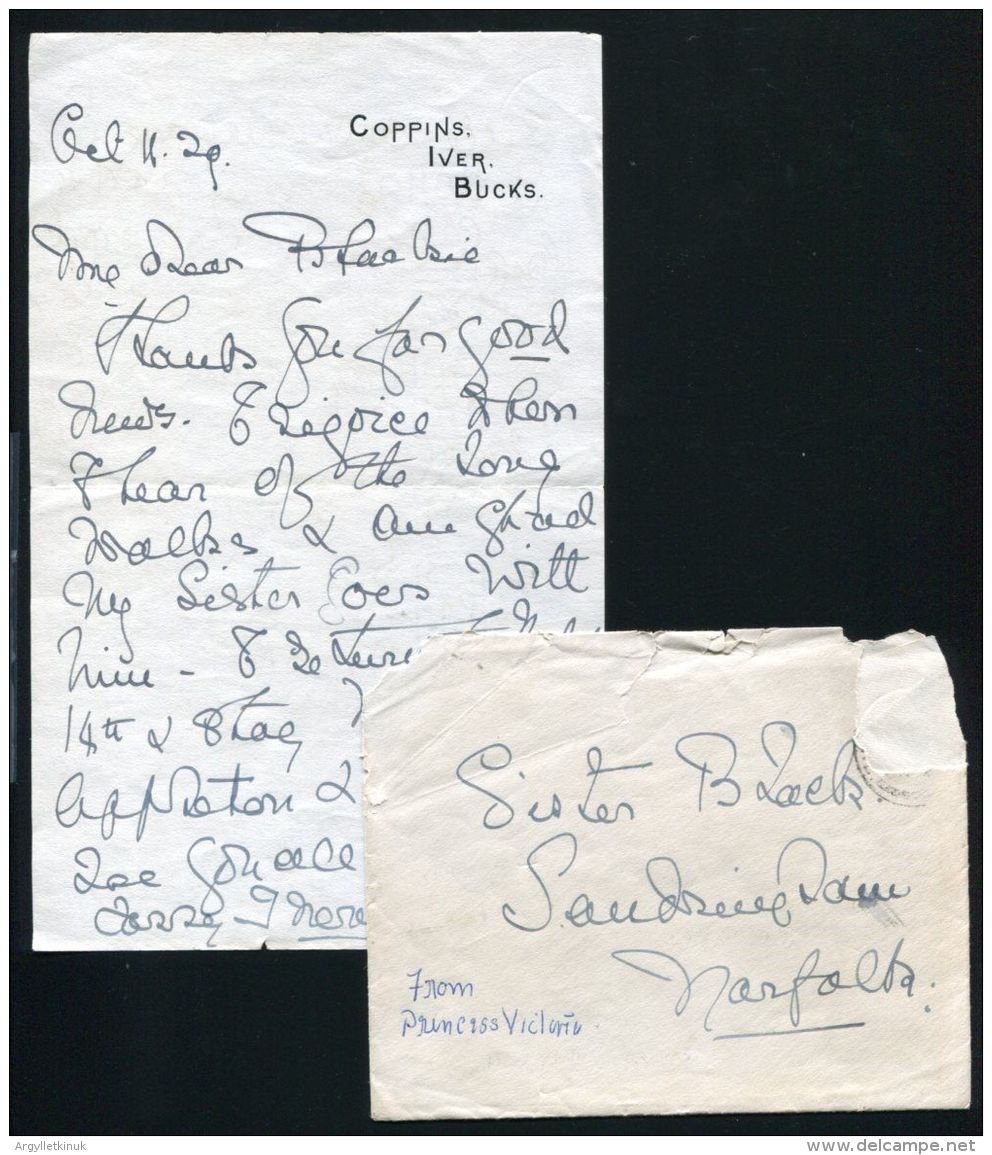 Oct 11. 29.
COPPINS,
IVER,
BUCKS.
My Dear Blackie
Thank you for good
news. I rejoice when
I hear of the long
walks & am glad
my Sister goes with
him - I return
14th & stay
Appleton &
see you all
sorry I
Sister Black.
Sandringham
Norfolk.
From
Princess Victoria
Argylletkinuk
www.delcampe.net